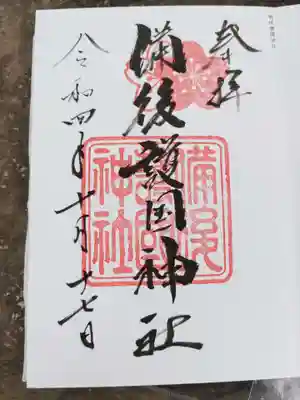 奉拝
備後護国神社
備後
護國
神社
令和四年十月十七日